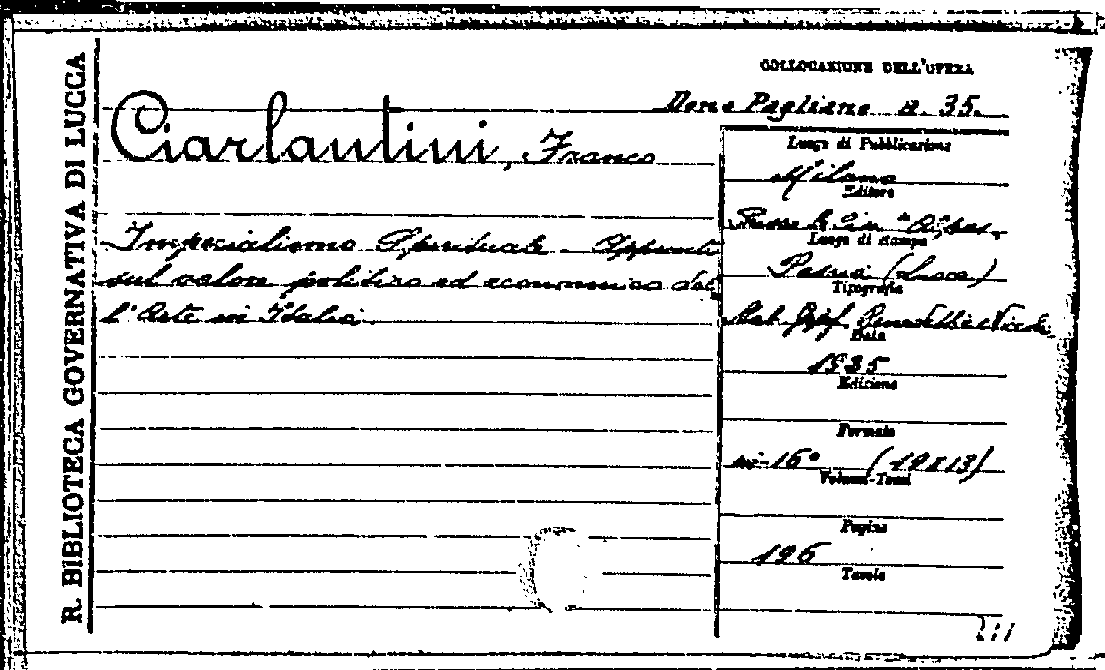 R. BIBLIOTECA GOVERNATIVA DI LUCCA
COLLOCAZIONE DELL'OPERA
Dono Pagliano n. 35.
Ciarlantini, Franco
Imperialismo Spirituale - Appunti
sul valore politico ed economico del
l'Arte in Italia.
Luogo di Pubblicazione
Milano
Editore
Luogo di stampa
Pescia (Lucca)
Tipografia
Stab. Graf. Benedetti e Nicoli
Data
1935
Edizione
Formato
in-16° (19x13)
Volumi-Tomi
Pagine
196
Tavole